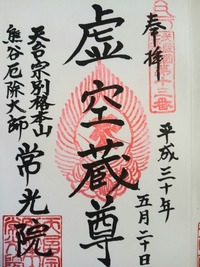 奉拝
平成三十年
五月二十日
虚空蔵尊
天台宗別格本山
熊谷厄除大師
常光院